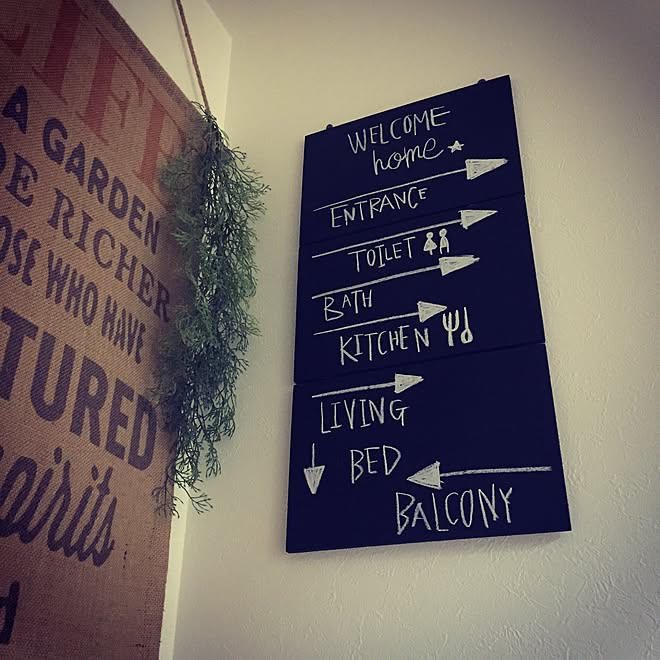 LIFE
A GARDEN
RICHER
WHO HAVE
WELCOME
home
ENTRANCE
TOILET
BATH
KITCHEN
LIVING
BED
BALCONY